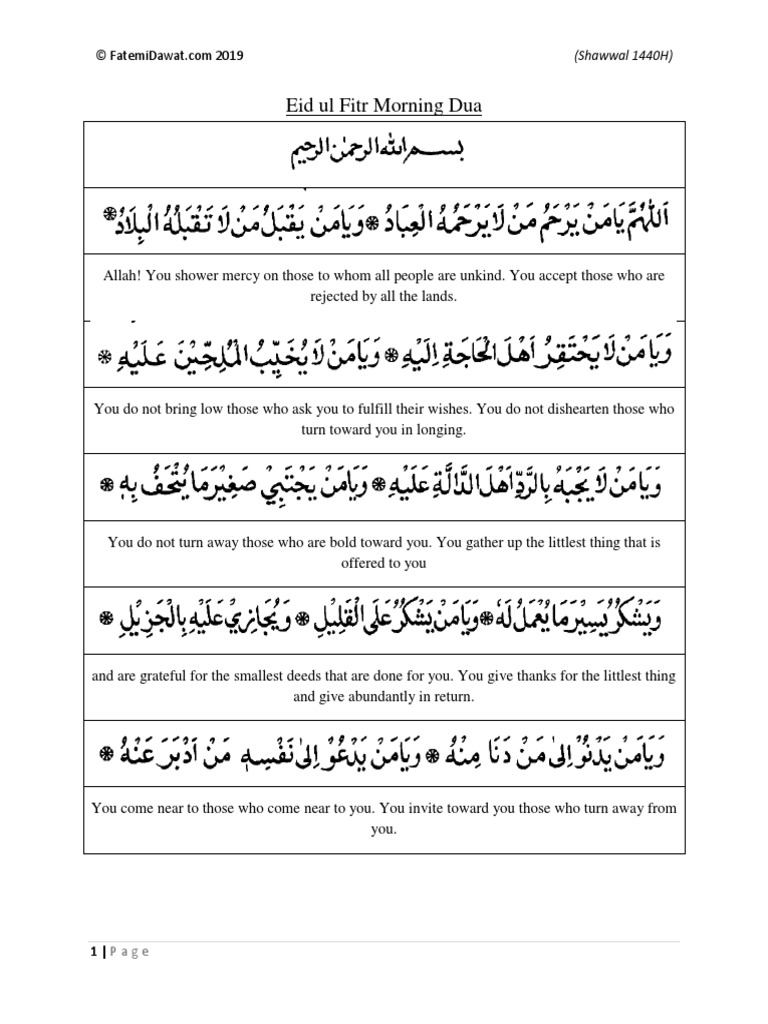 © FatemiDawat.com 2019 (Shawwal 1440H)
Eid ul Fitr Morning Dua
بسم الله الرحمن الرحيم
اَللّٰهُمَّ يَا مَنْ يَرْحَمُ مَنْ لَا يَرْحَمُهُ الْعِبَادُ ۞ وَيَا مَنْ يَقْبَلُ مَنْ لَا تَقْبَلُهُ الْبِلَادُ ۞
Allah! You shower mercy on those to whom all people are unkind. You accept those who are
rejected by all the lands.
وَيَا مَنْ لَا يَحْتَقِرُ اَهْلَ الْحَاجَةِ اِلَيْهِ ۞ وَيَا مَنْ لَا يُخَيِّبُ الْمُلِحِّيْنَ عَلَيْهِ ۞
You do not bring low those who ask you to fulfill their wishes. You do not dishearten those who
turn toward you in longing.
وَيَا مَنْ لَا يَجْبَهُ بِالرَّدِّ اَهْلَ الدَّالَّةِ عَلَيْهِ ۞ وَيَا مَنْ يَجْتَبِيْ صَغِيْرَ مَا يُتْحَفُ بِهٖ ۞
You do not turn away those who are bold toward you. You gather up the littlest thing that is
offered to you
وَيَشْكُرُ يَسِيْرَ مَا يُعْمَلُ لَهُ ۞ وَيَا مَنْ يَشْكُرُ عَلَى الْقَلِيْلِ ۞ وَيُجَازِيْ عَلَيْهِ بِالْجَزِيْلِ ۞
and are grateful for the smallest deeds that are done for you. You give thanks for the littlest thing
and give abundantly in return.
وَيَا مَنْ يَدْنُوْ اِلىٰ مَنْ دَنَا مِنْهُ ۞ وَيَا مَنْ يَدْعُوْ اِلىٰ نَفْسِهٖ مَنْ اَدْبَرَ عَنْهُ ۞
You come near to those who come near to you. You invite toward you those who turn away from
you.
1 | Page